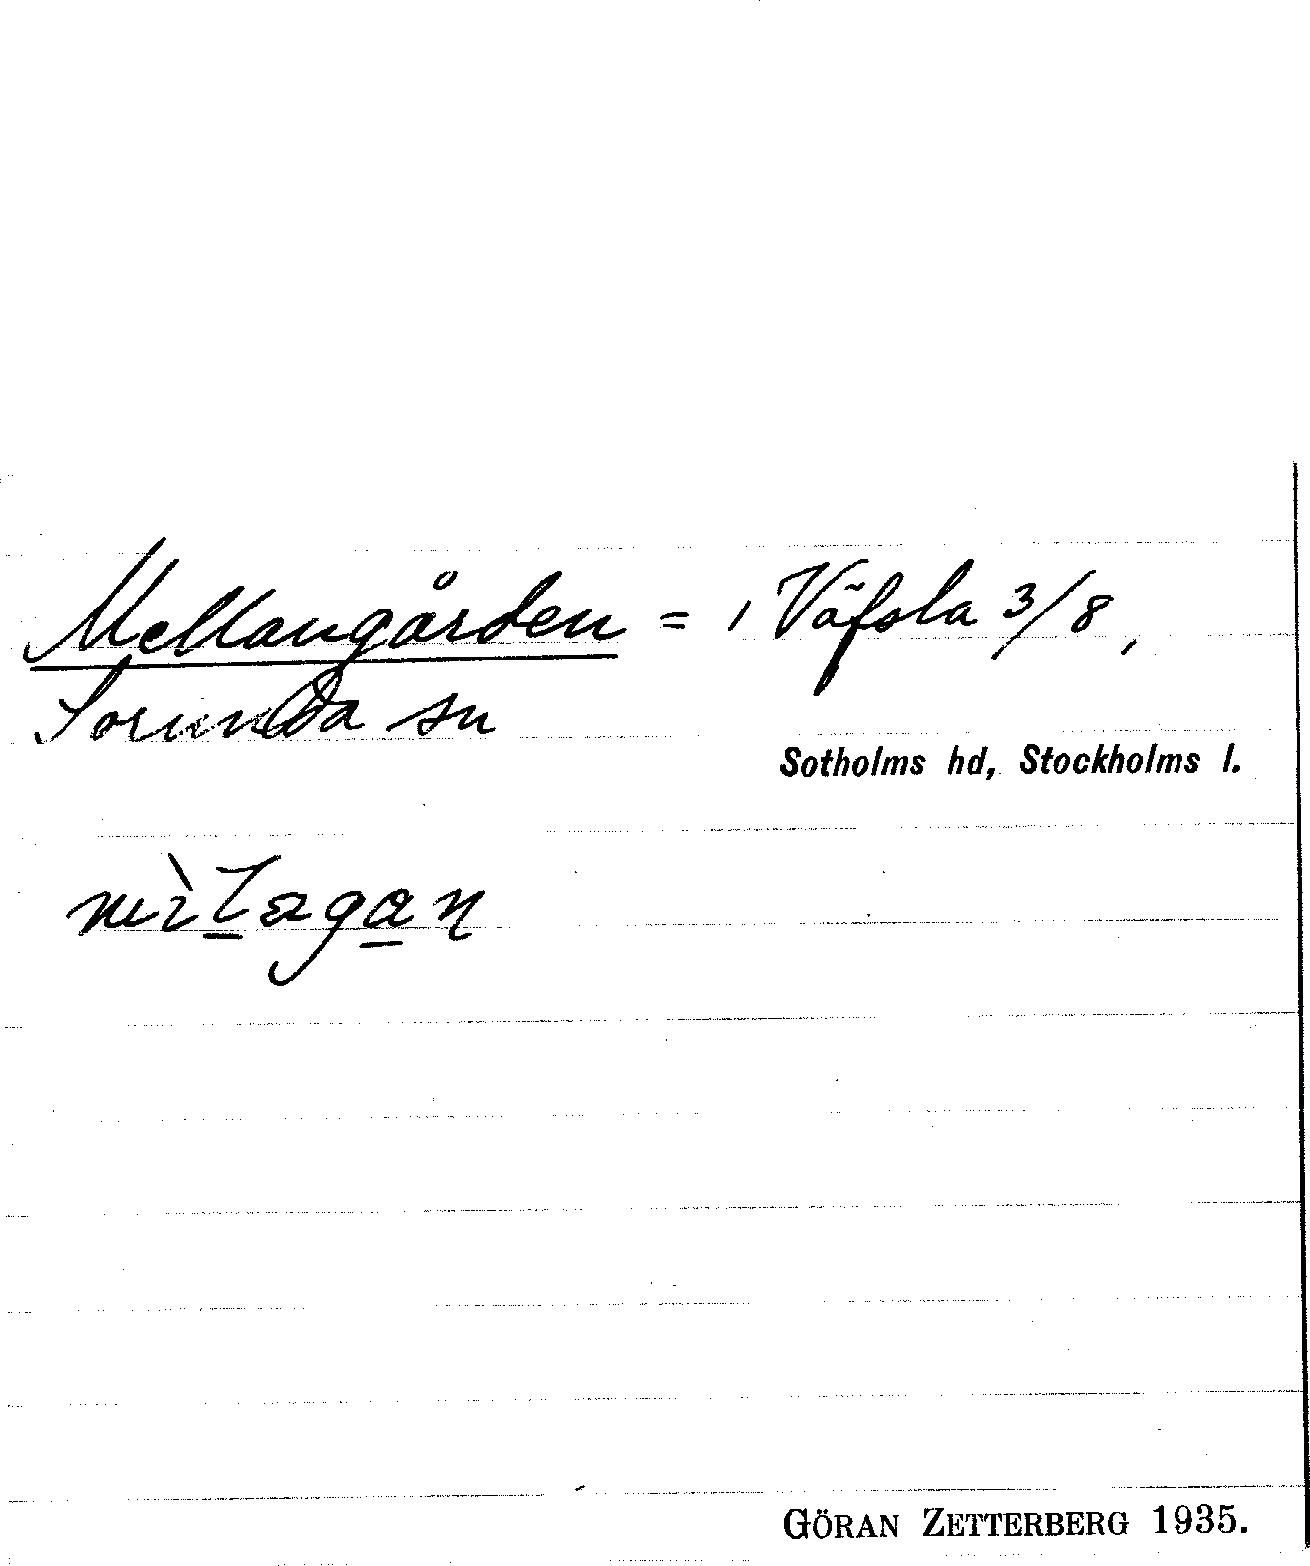 Mellangården = i Väfsla 3/8,
Sorunda sn
Sotholms hd, Stockholms l.
GÖRAN ZETTERBERG 1935.